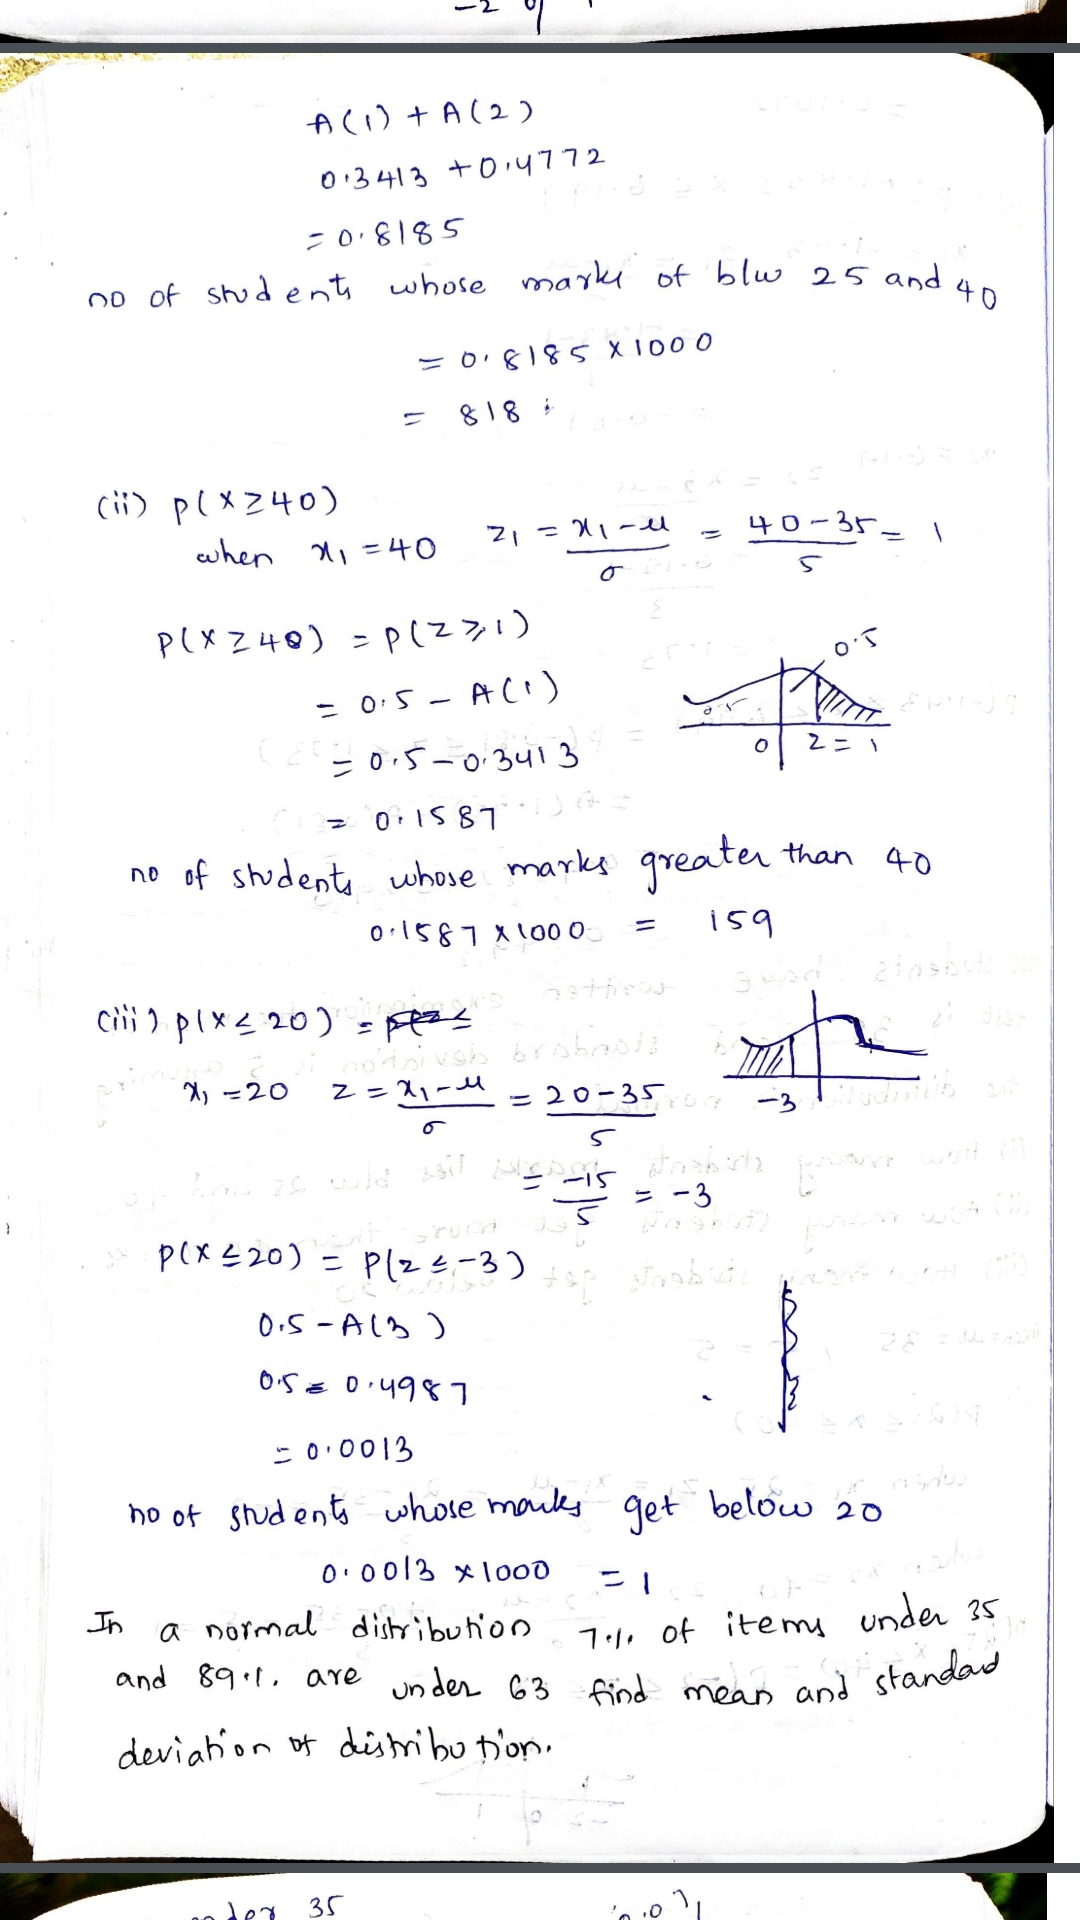 A(1) + A(2)
0.3413 + 0.4772
= 0.8185
no of students whose marks of b/w 25 and 40
= 0.8185 x 1000
= 818
(ii) P(X ≥ 40)
when x₁ = 40 z₁ = x₁-μ/σ = 40-35/5 = 1
P(X ≥ 40) = P(Z ≥ 1)
0.5
= 0.5 - A(1)
0.5
0 z = 1
= 0.5 - 0.3413
= 0.1587
no of students whose marks greater than 40
0.1587 x 1000 = 159
(iii) P(X ≤ 20) =
x₁ = 20 z = x₁-μ/σ = 20-35/5
-3
= -15/5 = -3
P(X ≤ 20) = P(z ≤ -3)
0.5 - A(3)
0.5 - 0.4987
= 0.0013
no of students whose marks get below 20
0.0013 x 1000 = 1
In a normal distribution 7% of items under 35
and 89%. are under 63 find mean and standad
deviation of distribution.
35